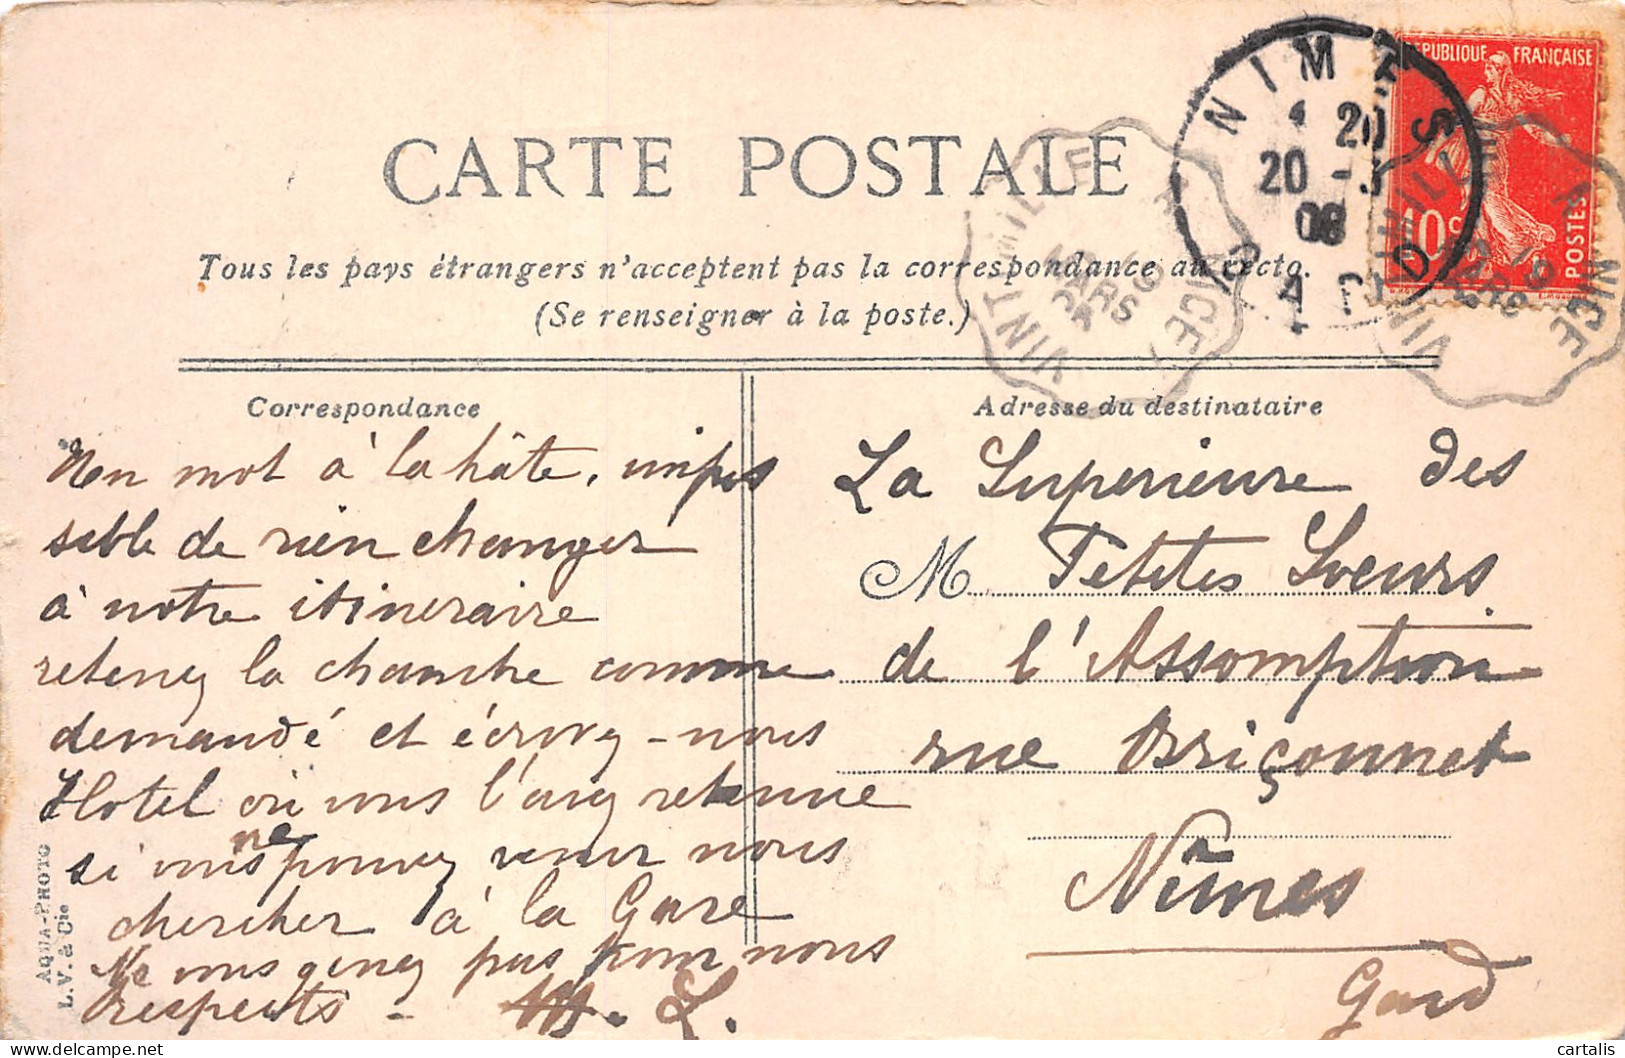 CARTE POSTALE
Tous les pays étrangers n'acceptent pas la correspondance au recto.
(Se renseigner à la poste.)
REPUBLIQUE FRANÇAISE
10c POSTES
NIMES
20
20 -3
08
GARD
VINTIMILLE A NICE
19
MARS
08
VINTIMILLE A NICE
19
MARS
08
Correspondance
Un mot à la hâte, impos
sible de rien changer
à notre itineraire
retenez la chambre comme
demandé et écrivez-nous
Hotel où vous l'avez retenue
si vous ne pouvez venir nous
chercher à la Gare
Ne vous genez pas pour nous
respects - M. L.
Adresse du destinataire
La Superieure des
M Petites Soeurs
de l'Assomption
rue Briçonnet
Nîmes
Gard
AQUA-PHOTO
L.V. & Cie
cartalis